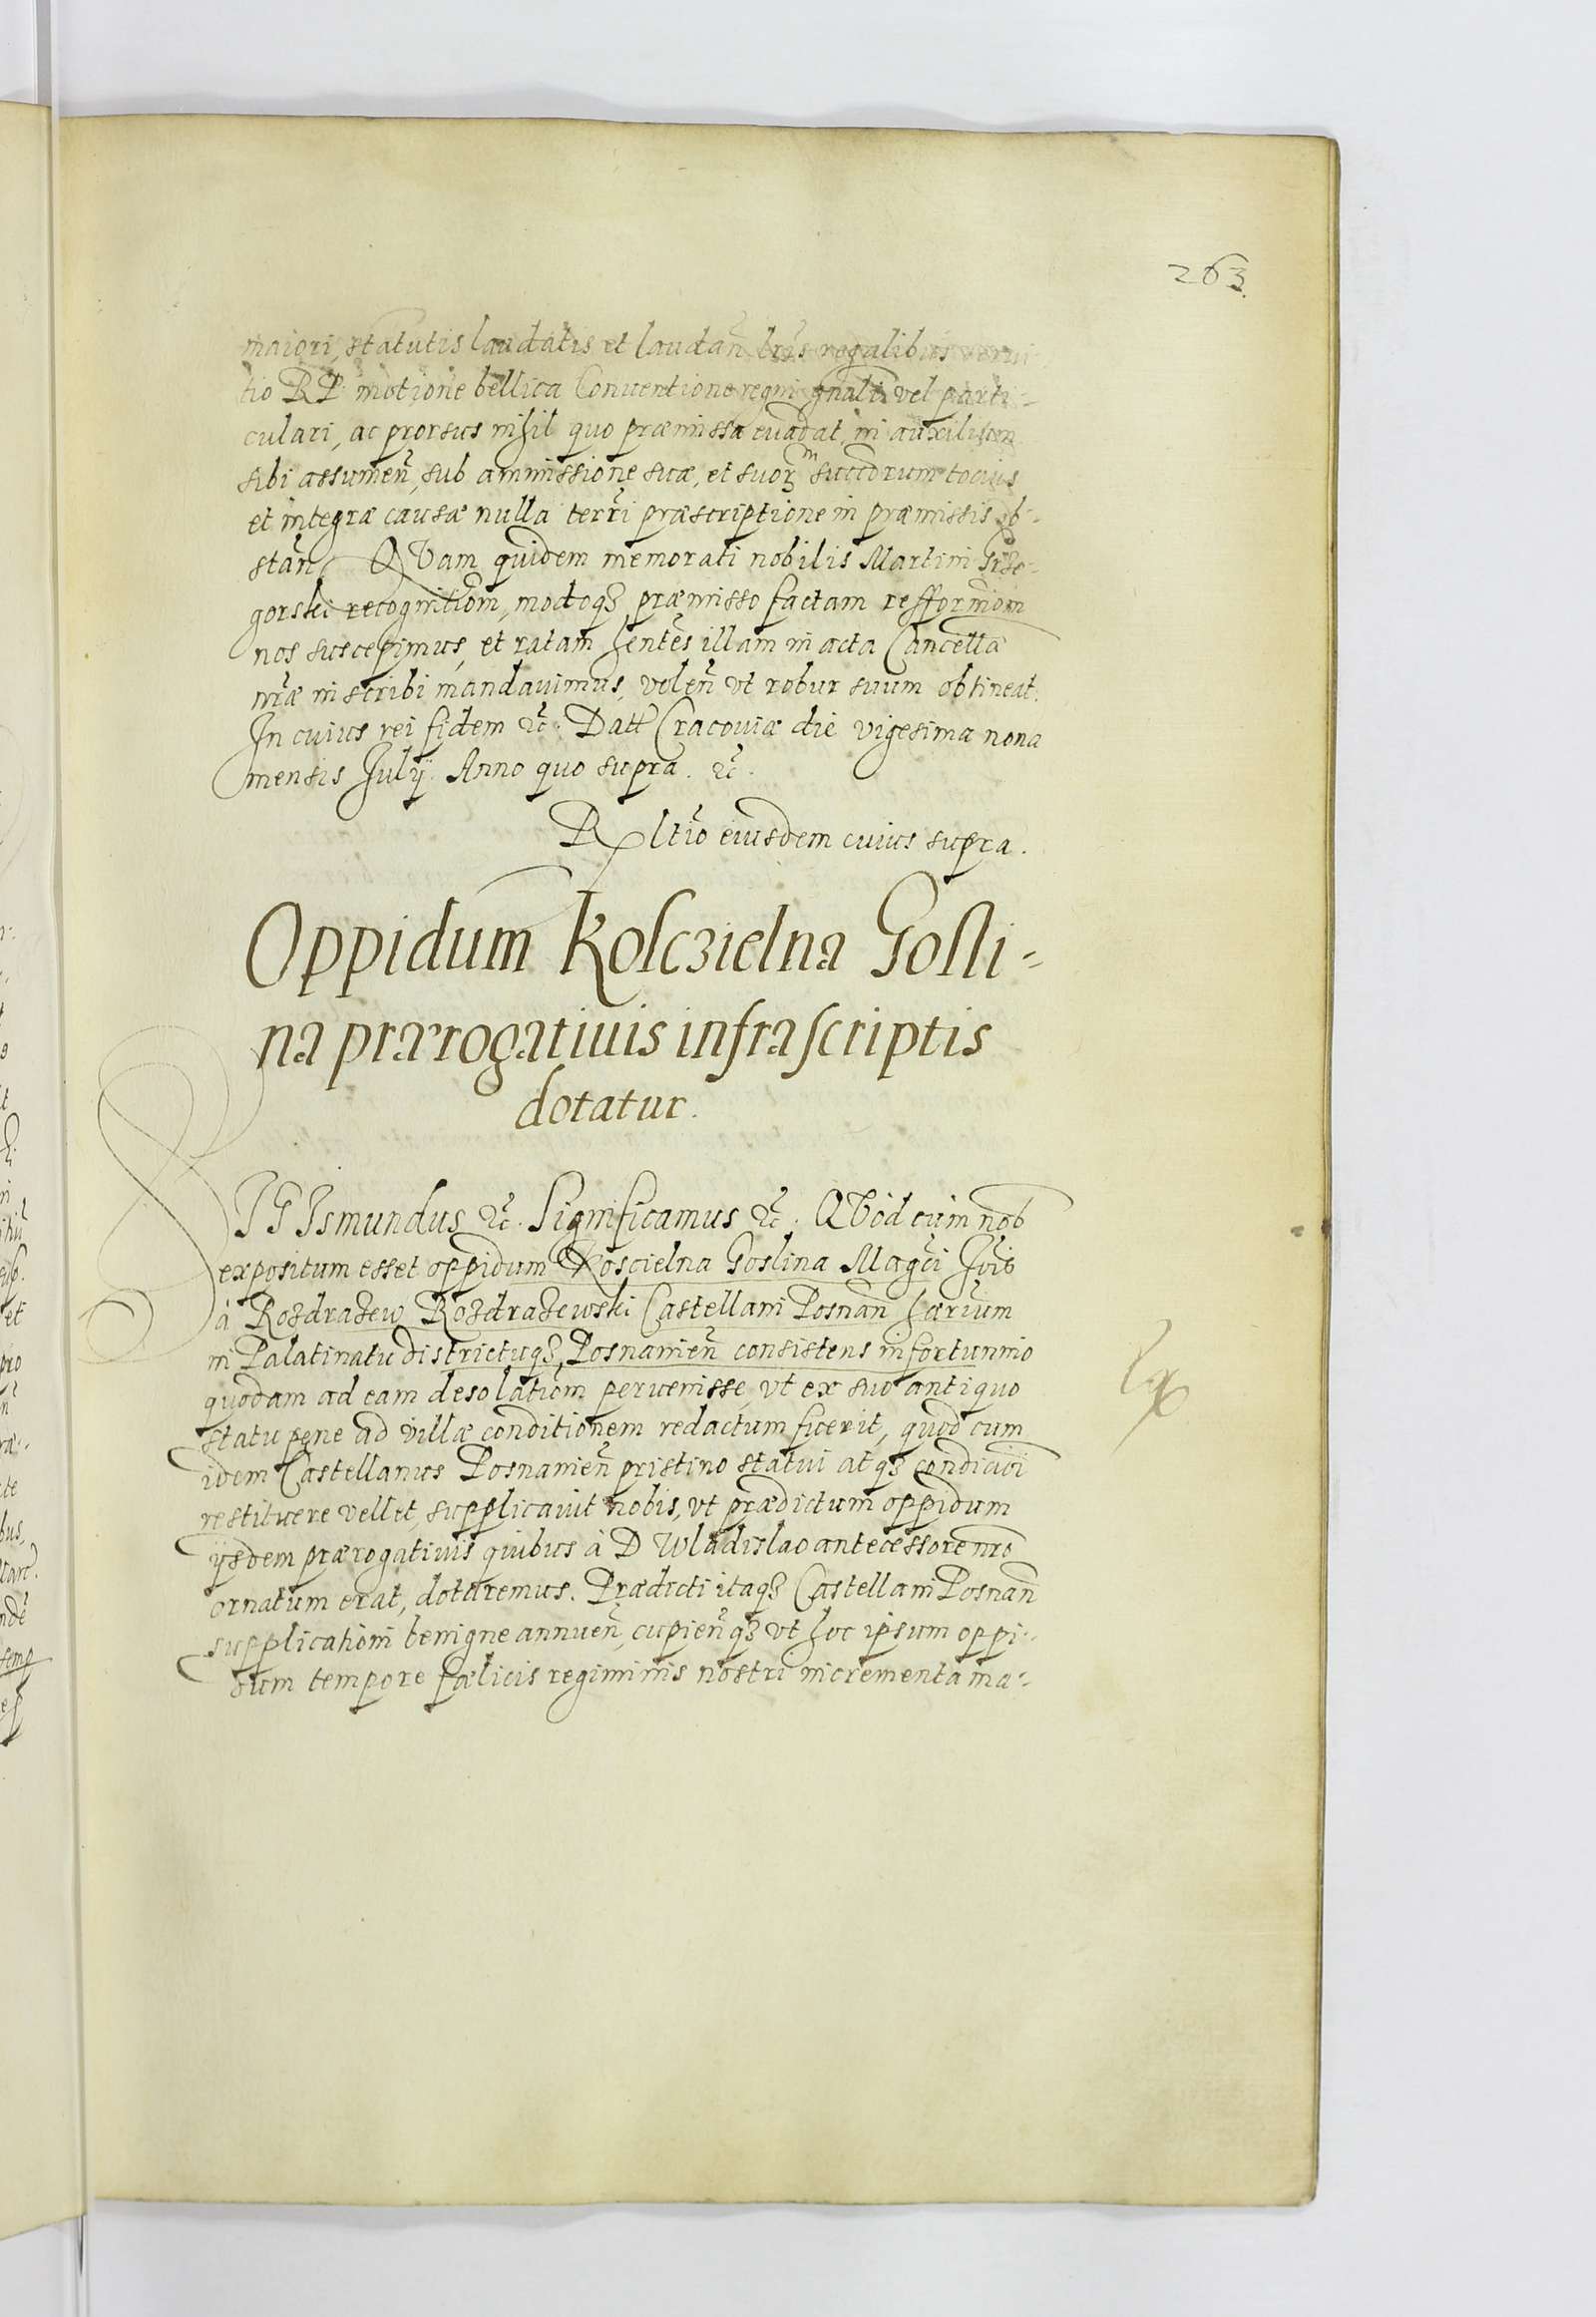 263.
maiori, statutis laudatis et laudan̄ lr̄is regalibus
tio RP. motione bellica Conuentione regni gn̄ali vel parti-
culari, ac prorsus nihil quo præmissa euadat, in auxilium
sibi assumen̄, sub ammissione suæ, et suorꝫ succ̄orum tocius
et integræ causæ nulla terr̄i præscriptione in præmissis ob-
stan̄. QVam quidem memorati nobilis Martini
gorski recognitiōm, modoqꝫ præmisso factam refformōm
nos suscepimus, et ratam hentes illam in acta Cancellæ
nr̄æ inscribi mandauimus, volen̄ vt robur suum obtineat.
In cuius rei fidem ꝛc̄. Datt Cracouiæ die vigesima nona
mensis Julÿ. Anno quo supra. ꝛc̄.
Rltīo eiusdem cuius supra.
Oppidum Kosczielna Gosli-
na prærogatiuis infrascriptis
dotatur.
SIGIsmundus ꝛc̄. Significamus ꝛc̄. QVod cum nob
expositum esset oppidum Koscielna Goslina Maḡci Jois
à Rozdrazew Rozdrazewski Castellani Posnan̄ hærium
in Palatinatu districtuqꝫ Posnanien̄ consistens infortunio
quodam ad eam desolatiōm peruenisse, vt ex suo antiquo
statu pene ad villæ conditionem redactum fuerit, quod cum
idem Castellanus Posnanien̄ pristino statui atqꝫ condicioī
restituere vellet, supplicauit nobis, vt prædictum oppidum
ijsdem prærogatiuis quibus à D Wladislao antecessore nr̄o
ornatum erat, dotaremus. Prædicti itaqꝫ Castellani Posnan̄
supplicatiōni benigne annuen̄, cupien̄qꝫ vt hoc ipsum oppi-
dum tempore fœlicis regiminis nostri incrementa ma-